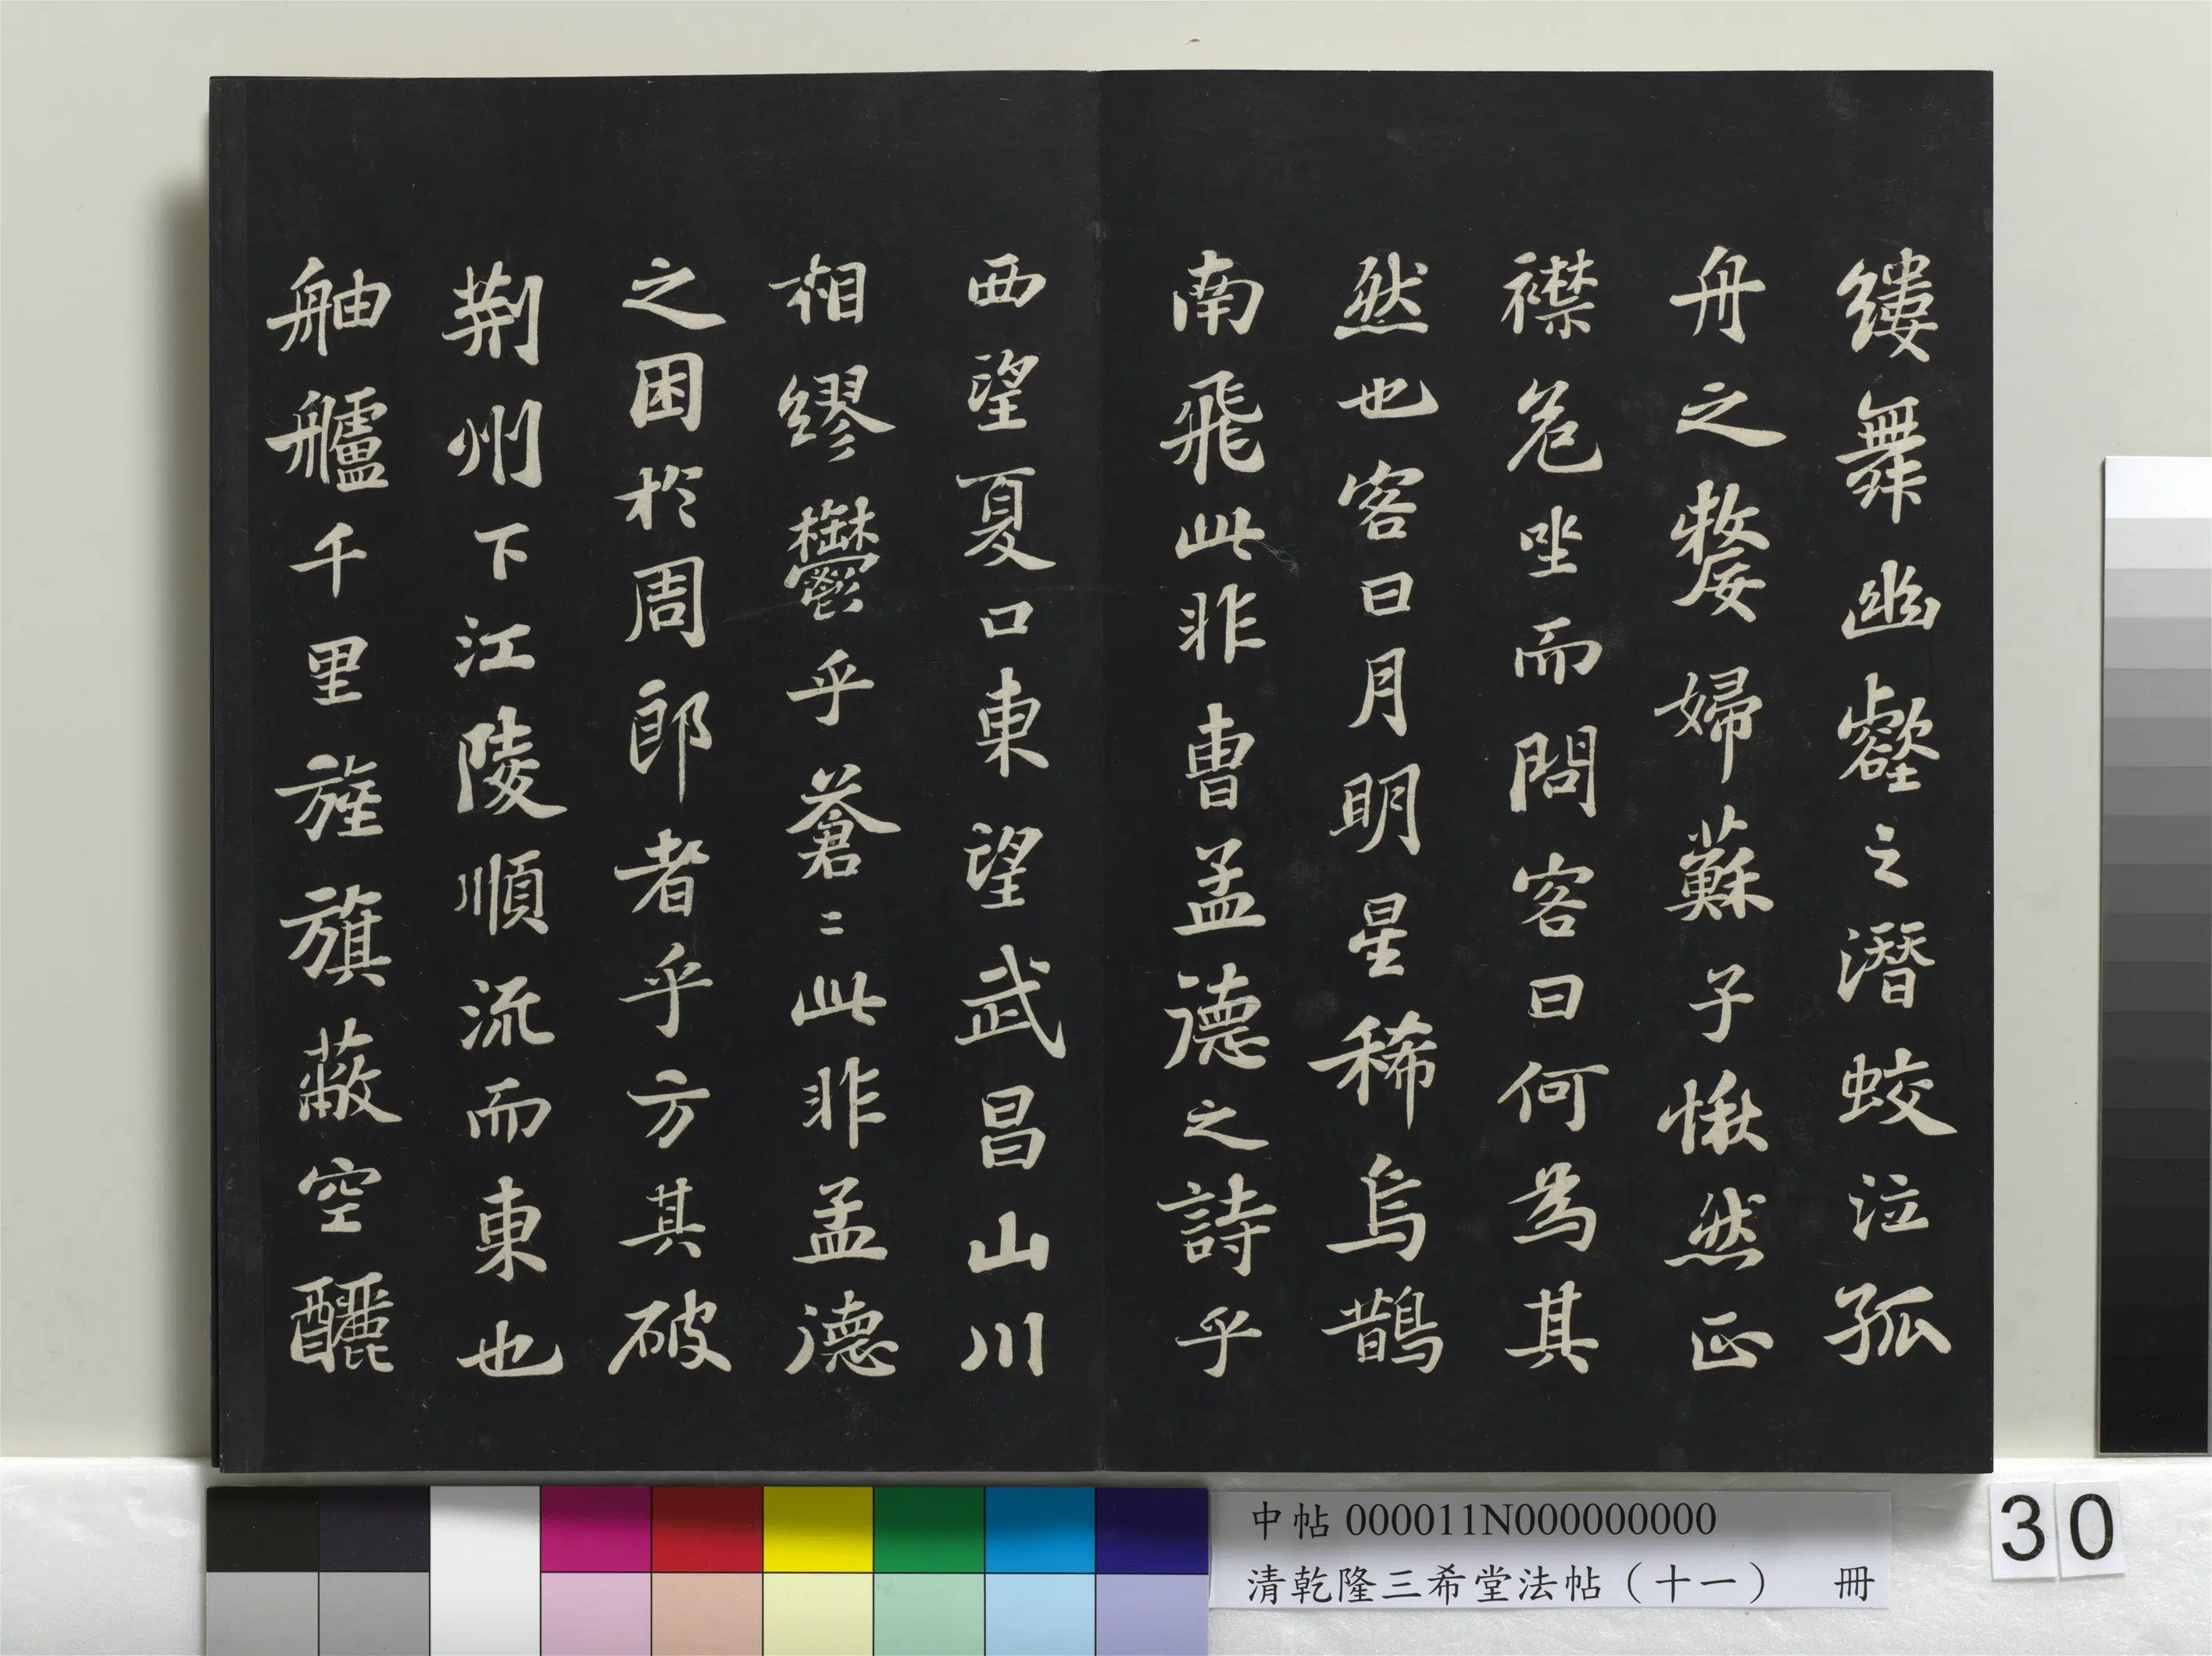 縷舞幽壑之潛蛟泣孤
舟之嫠婦蘇子愀然正
襟危坐而問客曰何為其
然也客曰月明星稀烏鵲
南飛此非曹孟德之詩乎
西望夏口東望武昌山川
相繆鬱乎蒼〻此非孟德
之困於周郎者乎方其破
荆州下江陵順流而東也
舳艫千里旌旗蔽空釃
中帖 000011N000000000
清乾隆三希堂法帖（十一） 冊
30